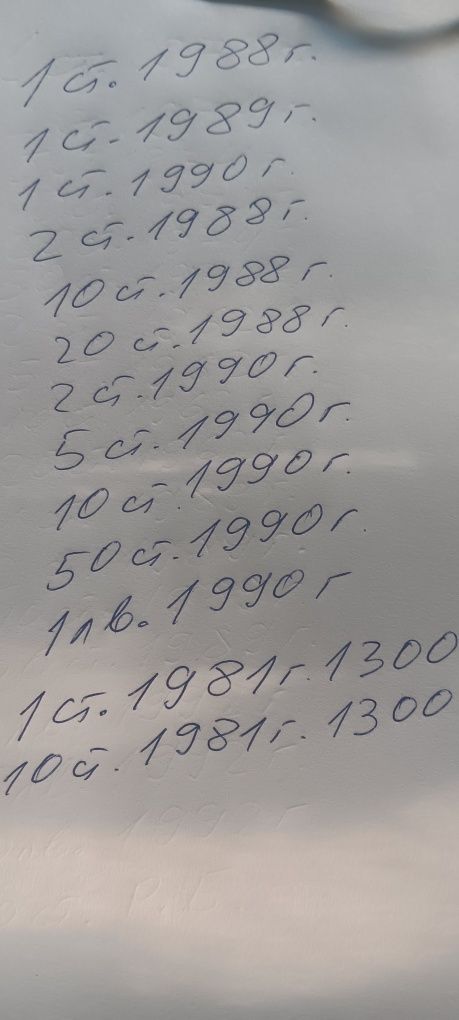 1 ст. 1988 г.
1 ст. 1989 г.
1 ст. 1990 г.
2 ст. 1988 г.
10 ст. 1988 г.
20 ст. 1988 г.
2 ст. 1990 г.
5 ст. 1990 г.
10 ст. 1990 г.
50 ст. 1990 г.
1 лв. 1990 г
1 ст. 1981 г. 1300
10 ст. 1981 г. 1300